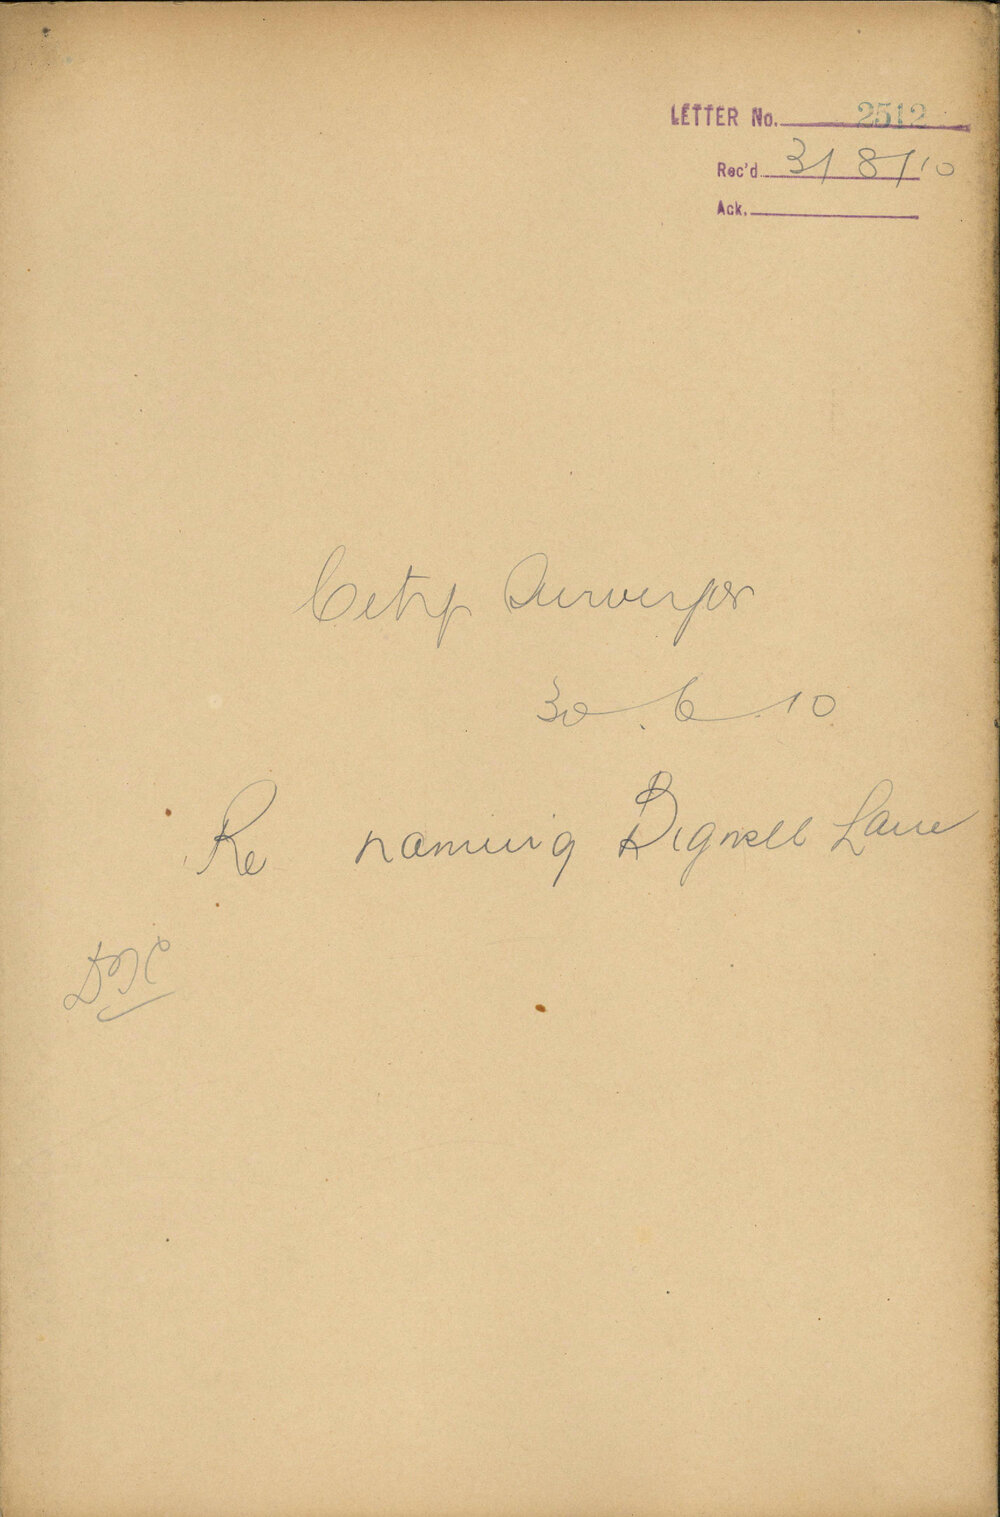 LETTER No. 2512
Rec'd 3/8/10
Ack.
City Surveyor
30.6.10
Re naming Bignell Lane